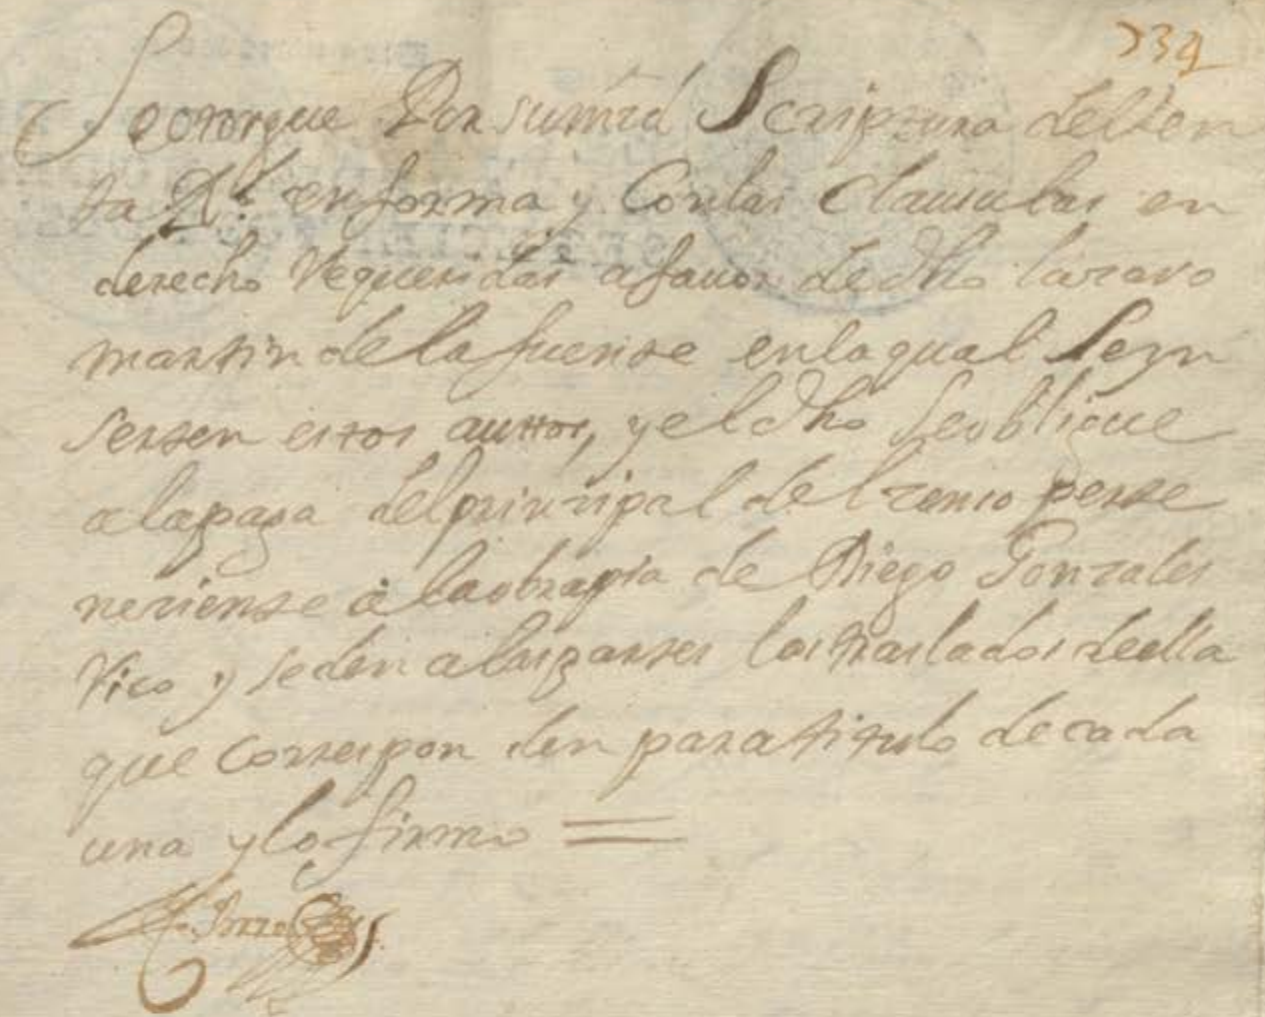 734
Se otorgue Por su mrd Scriptura de Ven
ta Rl. en forma y Con las Clausulas en
derecho requeridas a fauor de dho lazaro
martin de la fuente en la qual Se yn
serten estos auttos, y el dho Se oblique
a la paga del prinzipal del zenso perte
neziente à la obrapia de Diego Gonzales
Vico y se den a las partes los traslados de ella
que corresponden para titulo de cada
una y lo firmo =